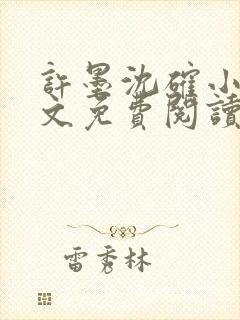 許墨沈確小
文免費閱讀
雷秀林